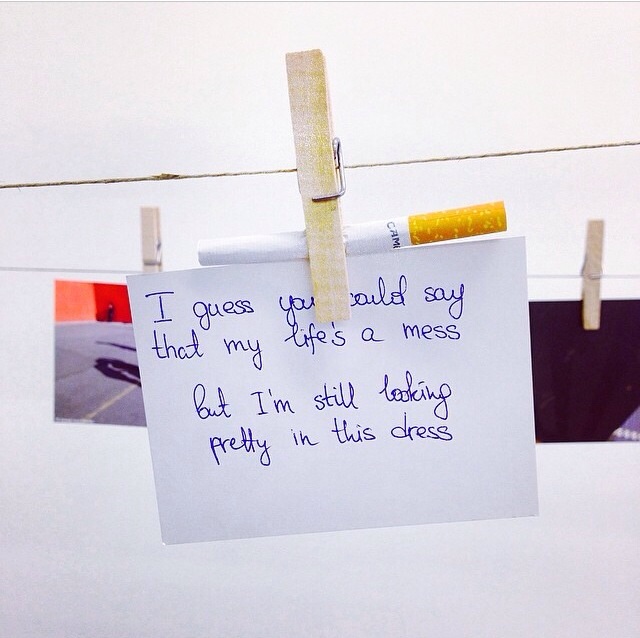 CAM
I guess you could say
that my life's a mess
but I'm still looking
pretty in this dress